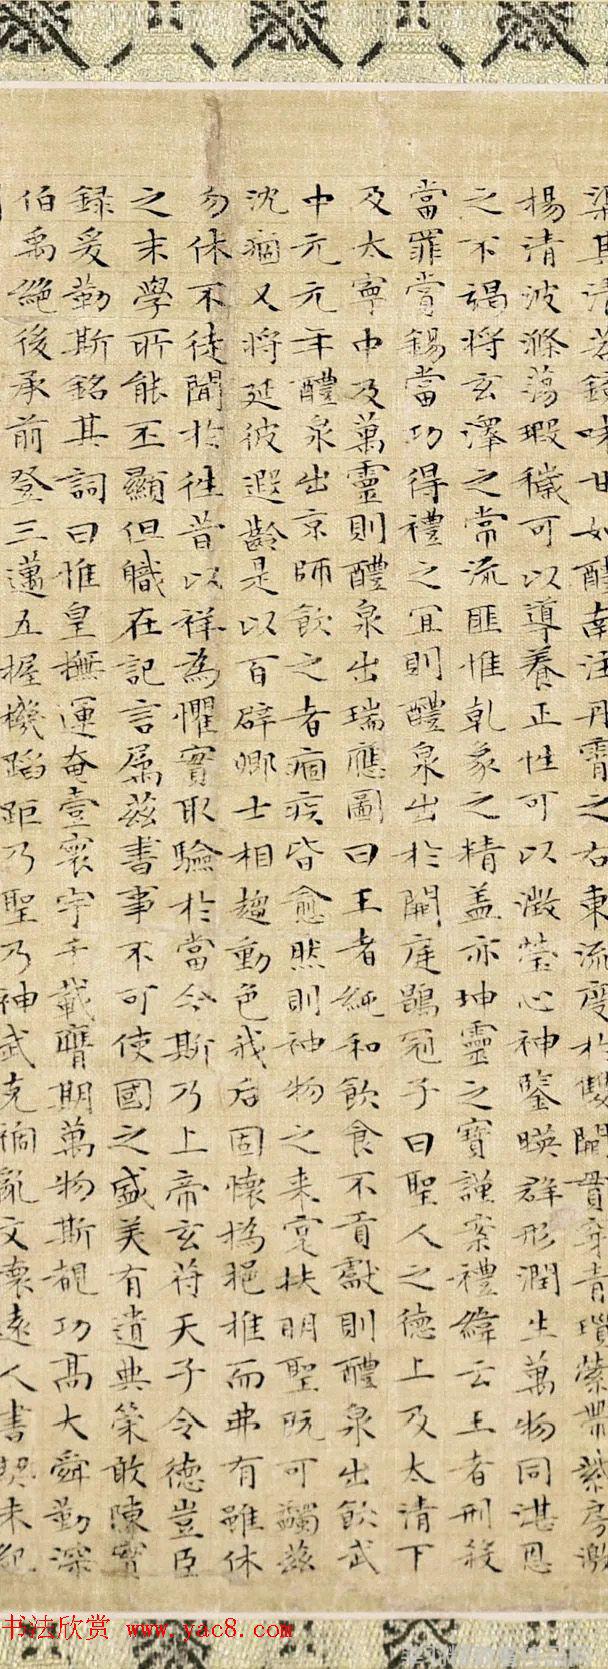 梁其清若鏡味甘如醴南注丹霄之右東流度於雙闕貫穿青瑣縈帶紫房激
楊清波滌蕩瑕穢可以導養正性可以澂瑩心神鑒暎群形潤生萬物同湛恩
之不竭將玄澤之常流匪惟乾象之精盖亦坤靈之寶謹案禮緯云王者刑殺
當罪賞錫當功得禮之宜則醴泉出於闕庭鶡冠子曰聖人之德上及太清下
及太寧中及萬靈則醴泉出瑞應圖曰王者純和飲食不貢獻則醴泉出飲武
中元元年醴泉出京師飲之者痼疾皆愈然則神物之来寔扶明聖既可蠲兹
沈痼又將延彼遐齡是以百辟卿士相趨動色我后固懷撝挹推而弗有雖休
勿休不徒聞於往昔以祥為懼實取驗於當今斯乃上帝玄符天子令德豈臣
之末學所能丕顯但職在記言屬兹書事不可使國之盛美有遺典策敢陳實
録爰勒斯銘其詞曰惟皇撫運奄壹寰宇千載膺期萬物斯覩功高大舜勤深
伯禹絶後承前登三邁五握機蹈距乃聖乃神武克禍亂文懷遠人書契未紀
书法欣赏 www.yac8.com